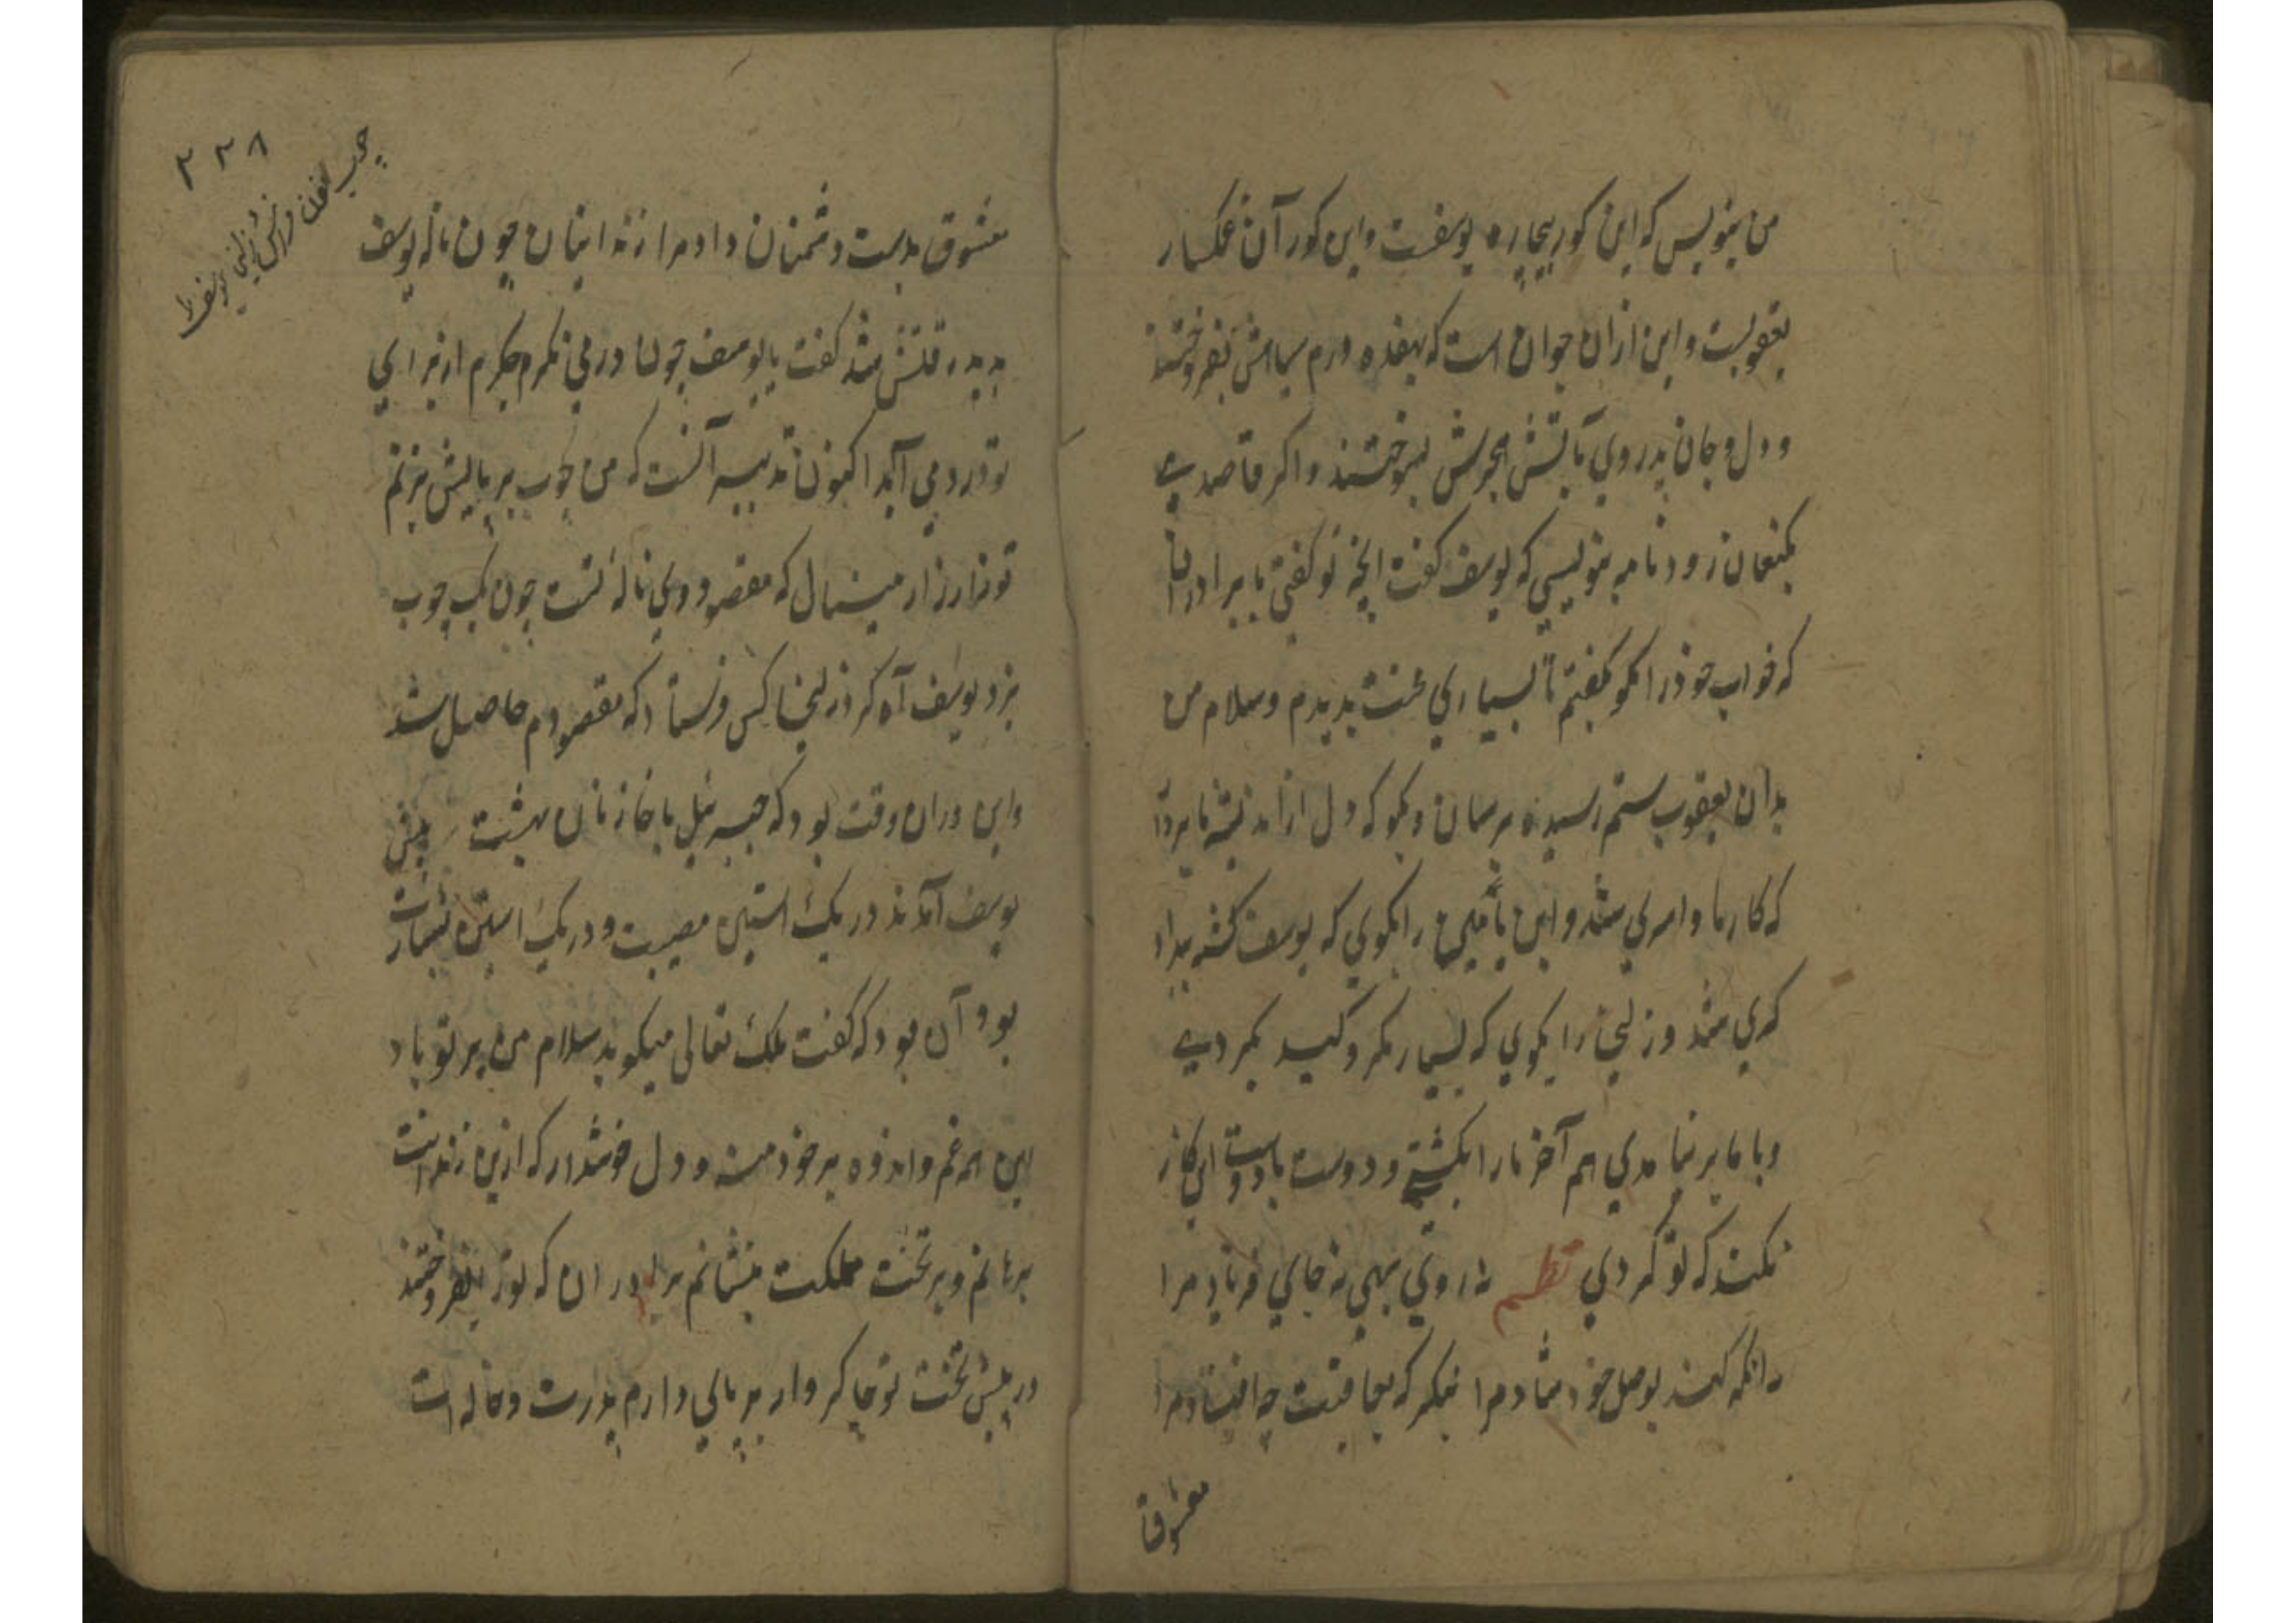 من بنویس که این کور بیچاره یوسفست واین کور آن غمکسار
یعقوبست واین ازان جوان است که بهفده درم سیاهش بفروختند
ودل وجان پدر وی بآتش هجرش بسوختند واکر قاصدے
بکنعان رود نامه بنویسی که یوسف کفت انچه تو کفتی با برادران
که خواب خود را مکو بکفتم تا بسیاری محنت بدیدم وسلام من
بدان یعقوب ستم رسیده برسان وبکو که دل از اندیشه ما بردار
که کار ما وامری شد وابن یامین را بکوی که یوسف کشته بیداد
کری شد وزلیخا را بکوی که بسیار مکر وکید بکردے
وبا ما بر نیامدی هم آخر ما را بکشتے ودوست با دوست این کار
نکند که تو کردی نظم نه روی بهی نه جای فریاد مرا
نه انکه کند بوصل خود شاد مرا بنکر که بعاقبت چه افتاد مرا
معشوق
۳۲۸
چوب زلیخا یوسف را
معشوق بدست دشمنان داد مرا زندانبان چون ناله یوسف
بدید رقتش شد کفت یا یوسف چون در می نکرم جکرم از برای
تو درد می آید اکنون تدبیر آنست که من چوب بر بالش بزنم
تو زار زار مینال که مقصود وی ناله تست چون یک چوب
بزد یوسف آه کرد زلیخا کس فرستاد که مقصودم حاصل شد
واین دران وقت بود که جبرئیل با خازنان بهشت پیش
یوسف آمدند در یک آستین مصیبت ودر یک آستین بشارت
بود آن بود که کفت ملک تعالی میکوید سلام من بر تو باد
این همه غم واندوه بر خود منه ودل خوشدار که ازین زندانت
برهانم وبر تخت مملکت بنشانم برادران که تورا بفروختند
در پیش تخت تو چاکر وار بر پای دارم پدرت وخاله ات